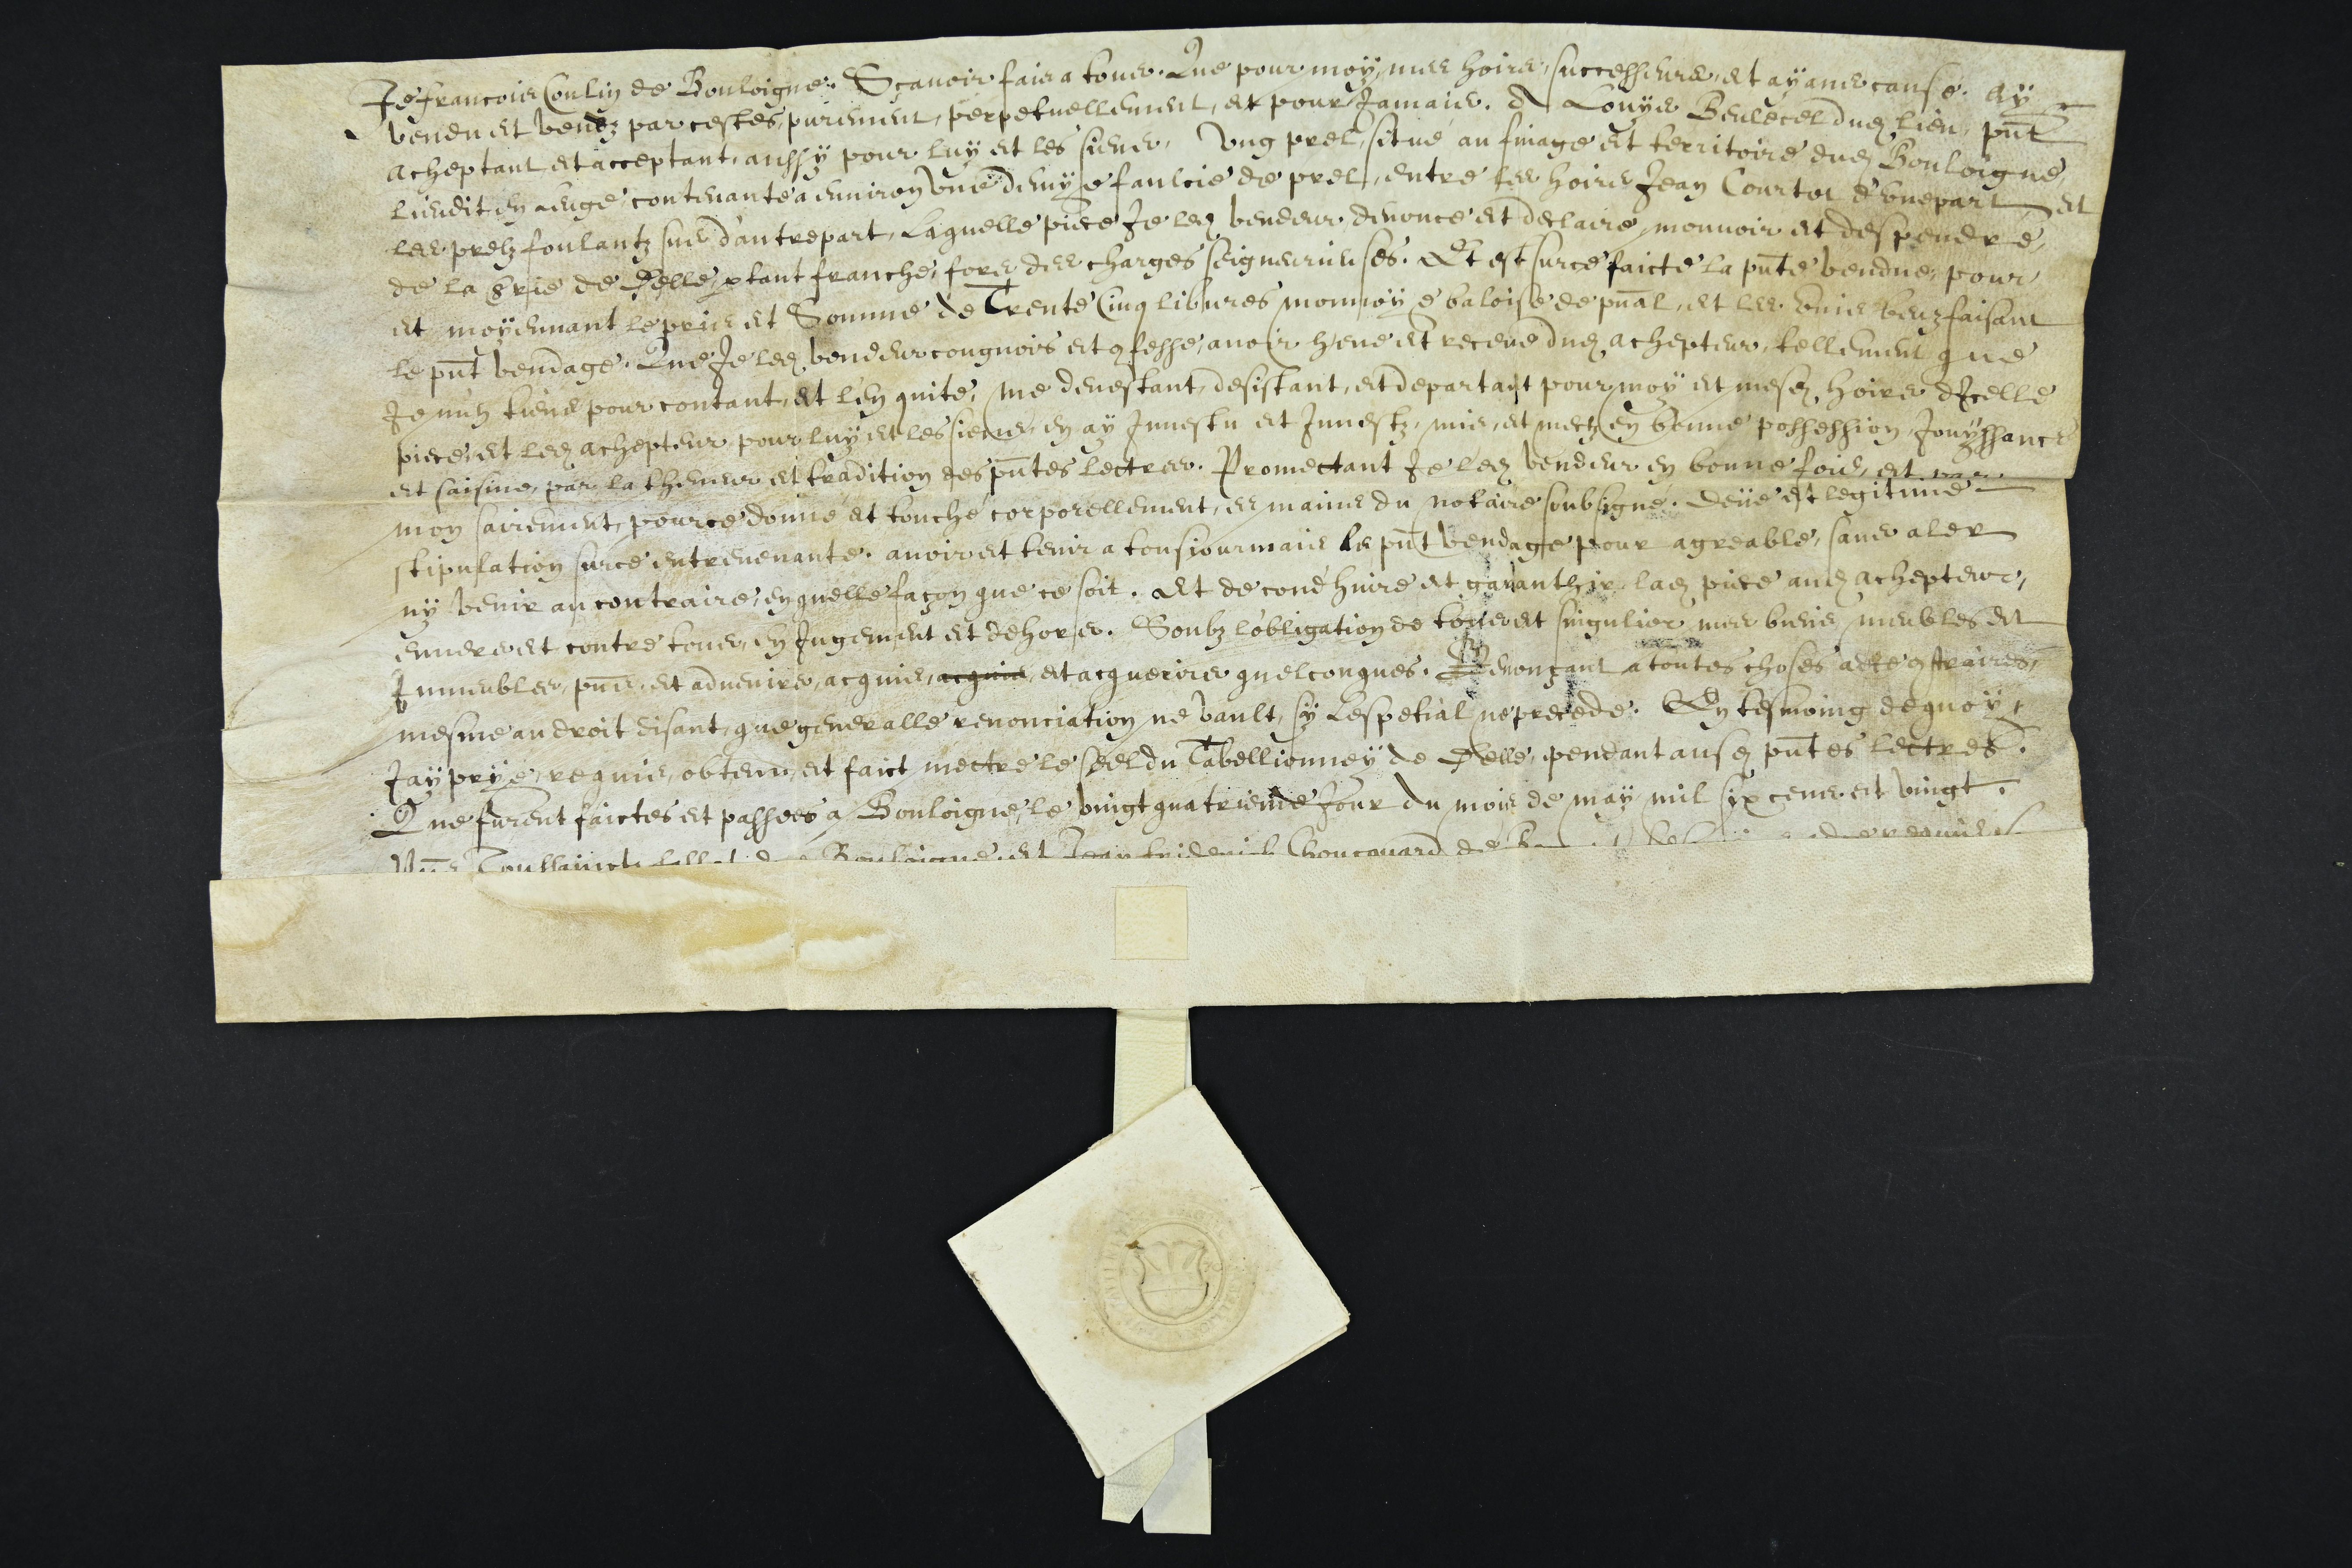 Je francois Coulin de Bouloigne. Scauoir fais a tous. Que pour moÿ, mes hoirs, successeurs, et aÿans cause. Aÿ
vendu et vendz par cestes, purement, perpetuellement, et pour Jamais. A Louÿs dud lieu, pnt
acheptant et acceptant, aussÿ pour luÿ et les siens, Vng prel, situé au finage et territoire dud Bouloigne,
lieudit en contenante a enuiron vne demÿe faulcie de prel, entre les hoirs Jean Courtot d'vnepart et
les prelz foulantz sus d'autrepart, Laquelle piece Je led vendeur denonce et declaire mouuoir et despendre,
de la Srie de Delle, franche, fors des charges seigneurieuses. Et est surce faicte la pnte vendue, pour
et moÿennant le pris et Somme de Trente Cinq libures monnoÿe baloise de pnal, et les vins beuz faisant
le pnt vendage. Que Je led vendeur congnois et 9fesse, auoir heue et receue dud achepteur, tellement que
Je m'en tiens pour contant, et l'en quite, me deuestant, desistant, et departant pour moÿ et mesd hoirs d'Icelle
piece, et led achepteur pour luÿ et les siens, en aÿ Inuestu et Inuestz, mis, et metz en bonne possession, Jouÿssance
et saisine, par la theneur et tradition des pntes lectres. Promectant Je led vendeur en bonne foid, et par
mon sairement, pource donné et touché corporellement, es mains du notaire soubsigné. deüe et legitime
stipulation surce entreuenante. auoir et tenir a tousiourmais le pnt vendage pour agreable, sans aler
nÿ venir au contraire, en quelle façon que ce soit. Et de condhuire et garanthir lad piece aud achepteur,
enuers et contre tous, en Jugement et dehors. Soubz lobligation de tous et singulier mes biens meubles et
Jmmeubles, pns, et aduenirs, acquis, acquis, et acquerirs quelconques. Renonçant a toutes choses a ce 9traires,
mesme au droit disant, que generalle renonciation ne vault, sÿ Lespetial ne precede. En tesmoing dequoÿ
Jaÿ prÿé, requis, obtenu, et faict mectre le seel du Tabellionney de Delle, pendant ausd pntes lectres.
Que furent faictes et passees a Bouloigne, le vingtquatrieme Jour du mois de maÿ mil six cens et vingt.
Pns Toussainct Bouloigne, et Jean friderich Choucouard de